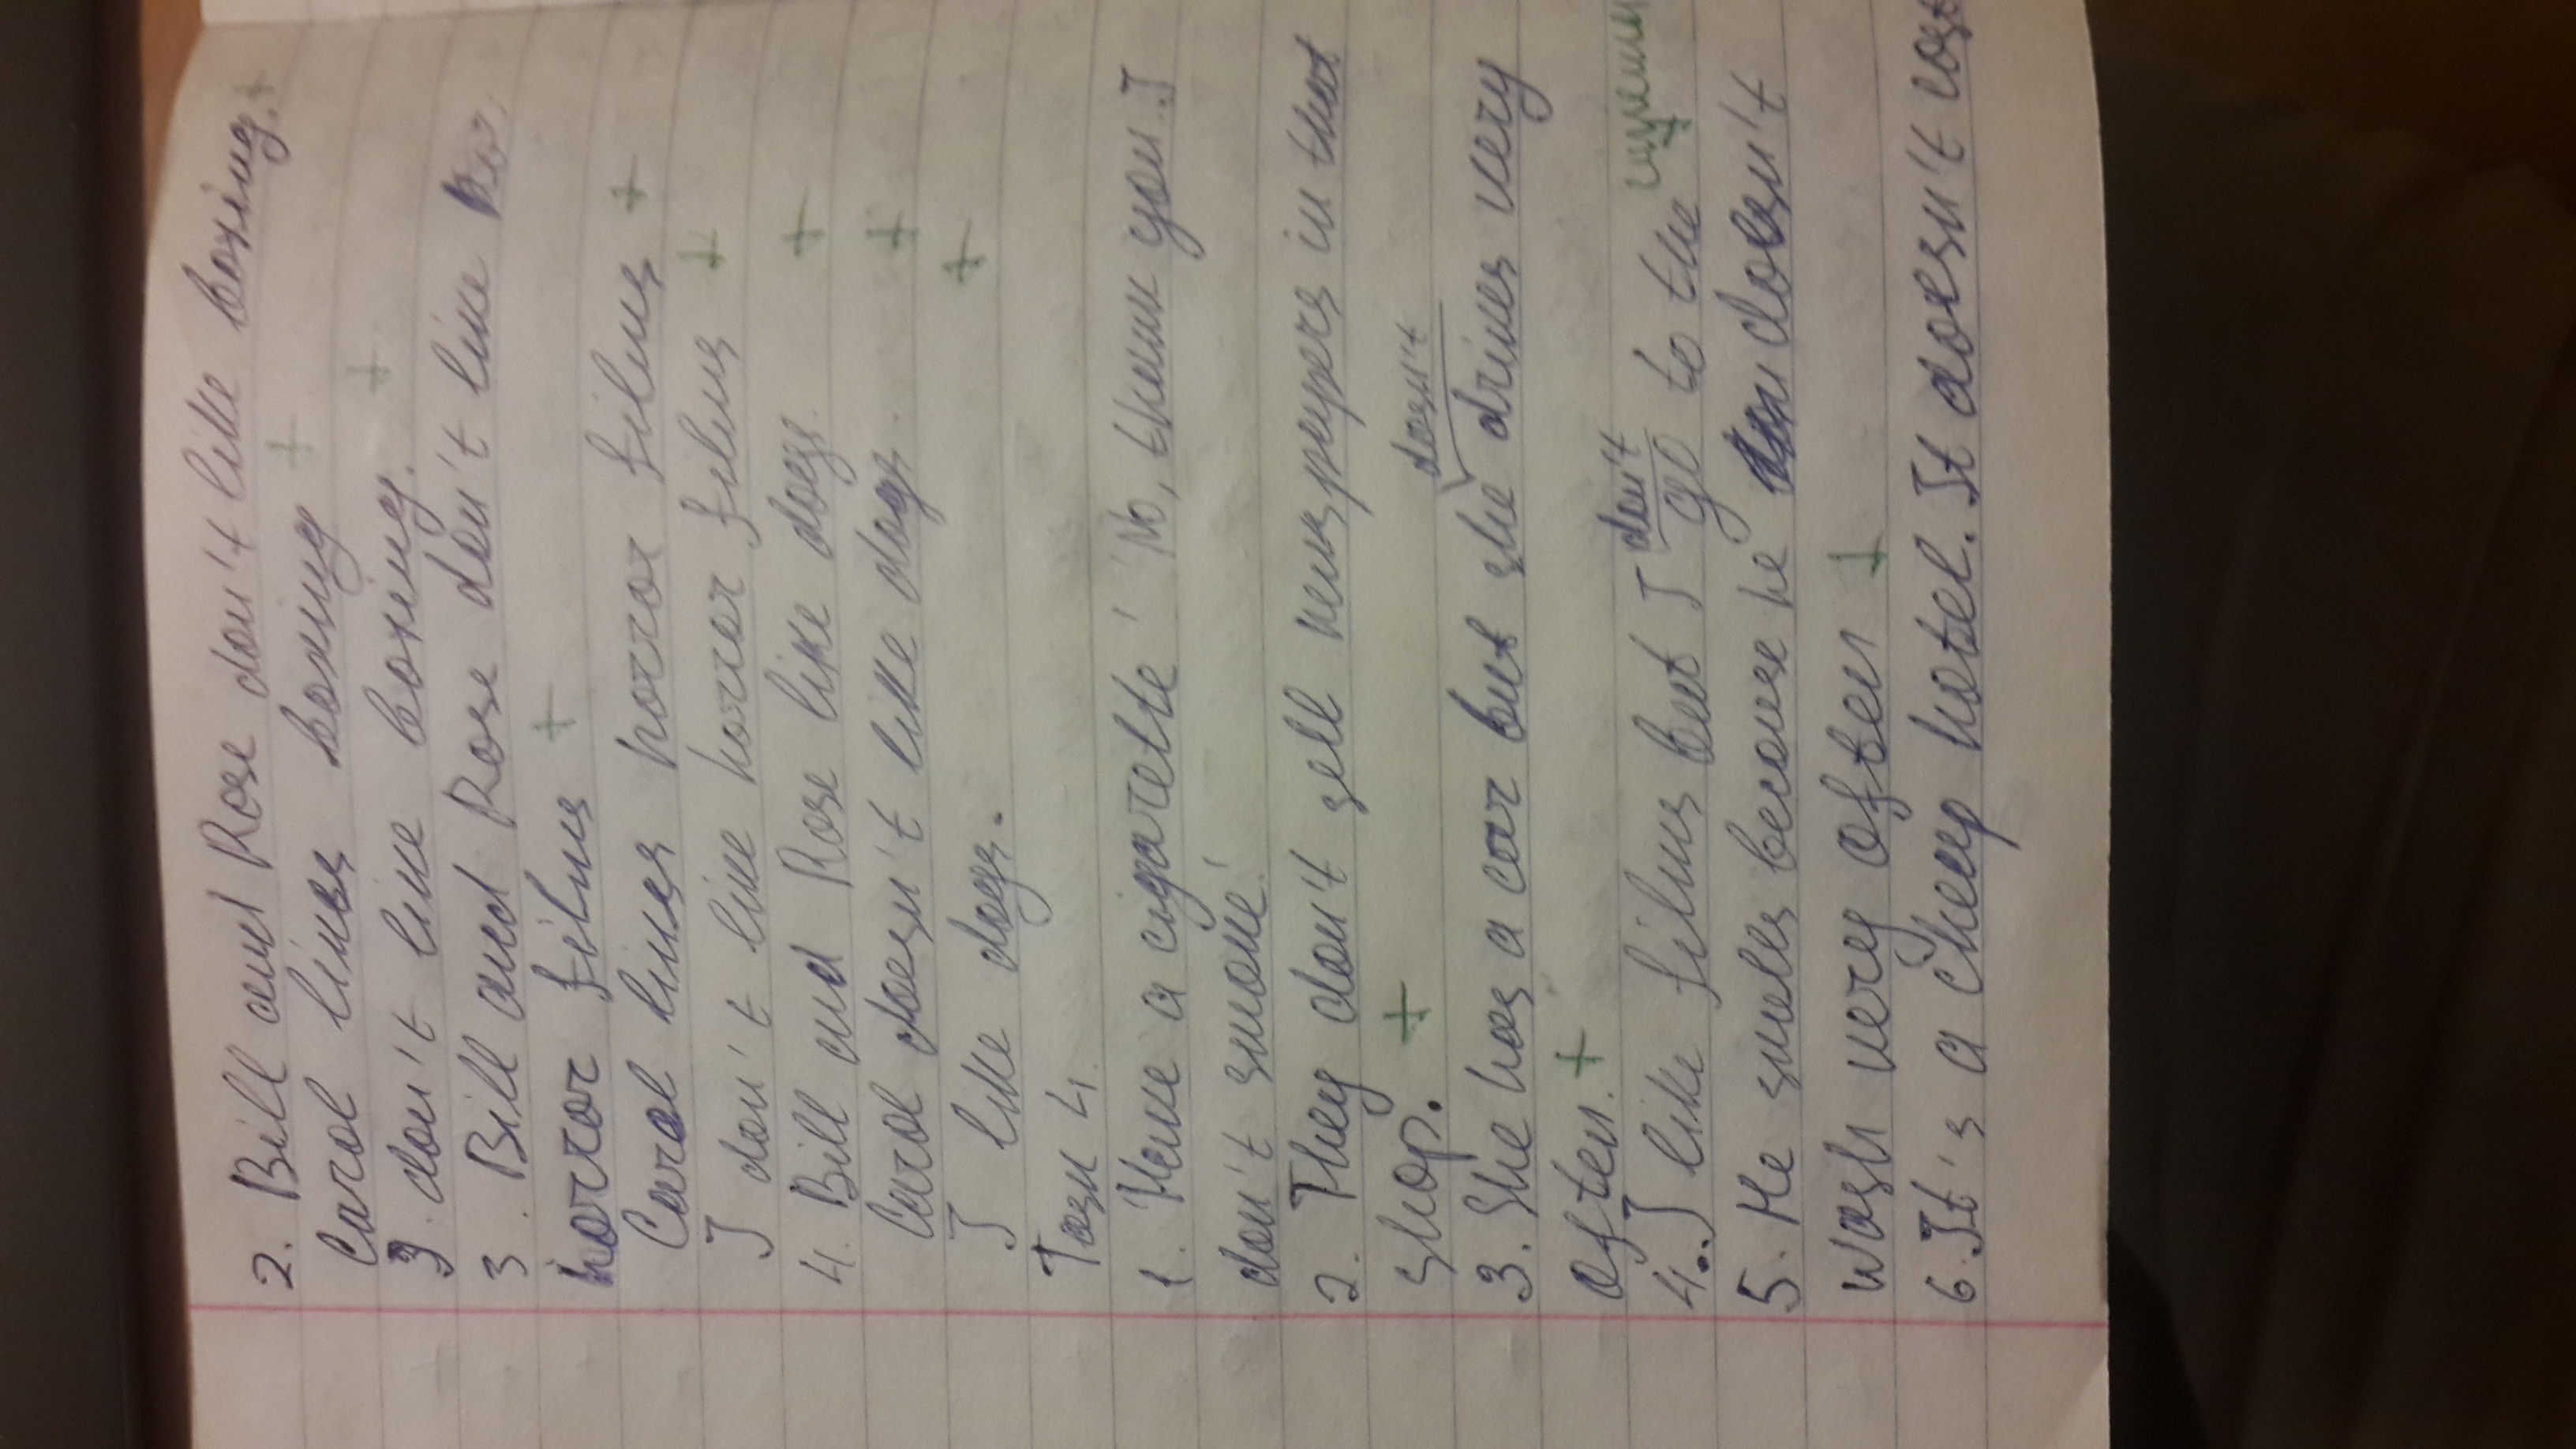 2. Bill and Rose don't like boxing. +
Carol likes boxing +
I don't like boxing. +
3. Bill and Rose don't like hor
horror films +
Carol likes horror films +
I don't like horror films +
4. Bill and Rose like dogs. +
Carol doesn't like dogs. +
I like dogs. +
Task 4.
1. 'Have a cigarete' 'No, thank you. I
don't smoke.'
2. They don't sell newspapers in that
shop. +
doesn't
3. She has a car but she drives very
often. +
don't
4. I like films but I go to the
5. He smells because he doesn't
wash very often +
6. It's a cheap hotel. It doesn't cost